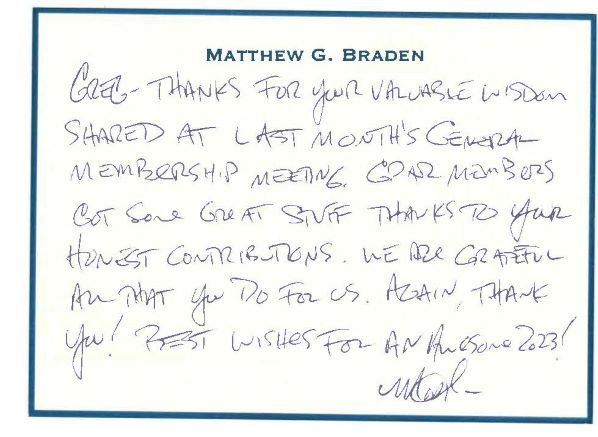 MATTHEW G. BRADEN
GREG- THANKS FOR YOUR VALUABLE WISDOM
SHARED AT LAST MONTH'S GENERAL
MEMBERSHIP MEETING. GDAR MEMBERS
GOT SOME GREAT STUFF THANKS TO YOUR
HONEST CONTRIBUTIONS. WE ARE GRATEFUL
ALL THAT YOU DO FOR US. AGAIN, THANK
YOU! BEST WISHES FOR AN AWESOME 2023!